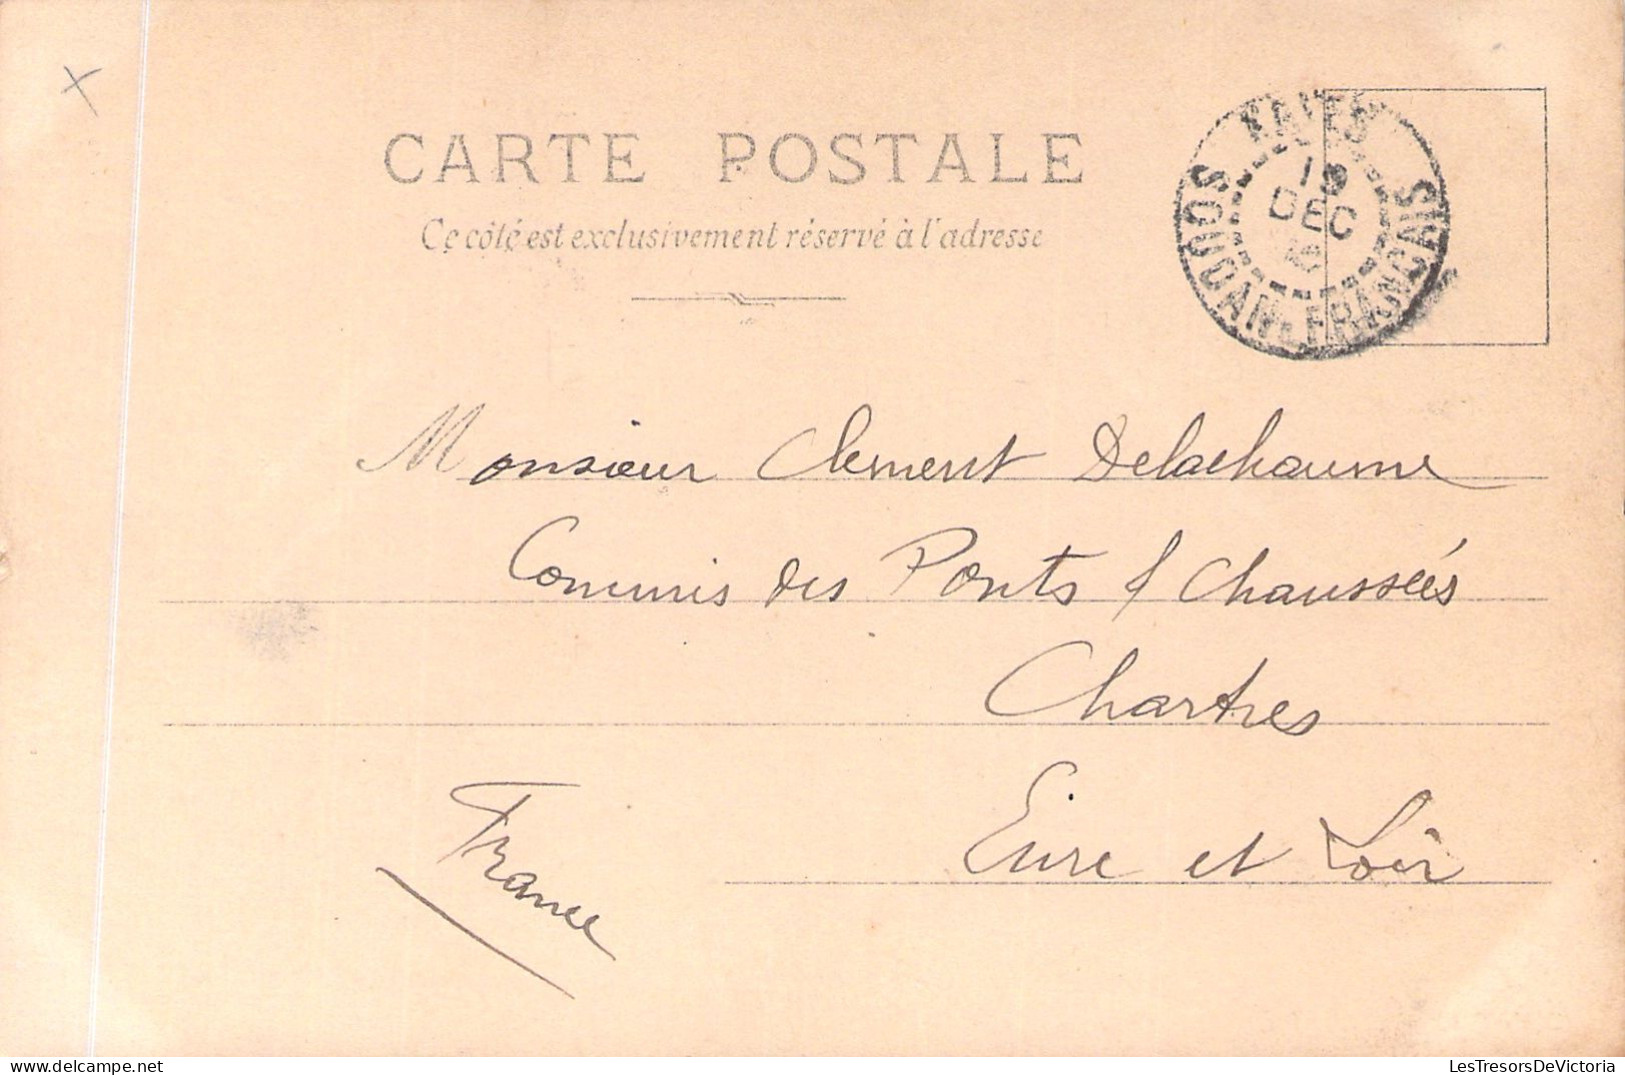 CARTE POSTALE
Ce côté est exclusivement réservé à l'adresse
KAYES
19
DEC
SOUDAN-FRANCAIS
Monsieur Clement Delachaume
Commis des Ponts & Chaussées
Chartres
Eure et Loir
France
LesTresorsDeVictoria